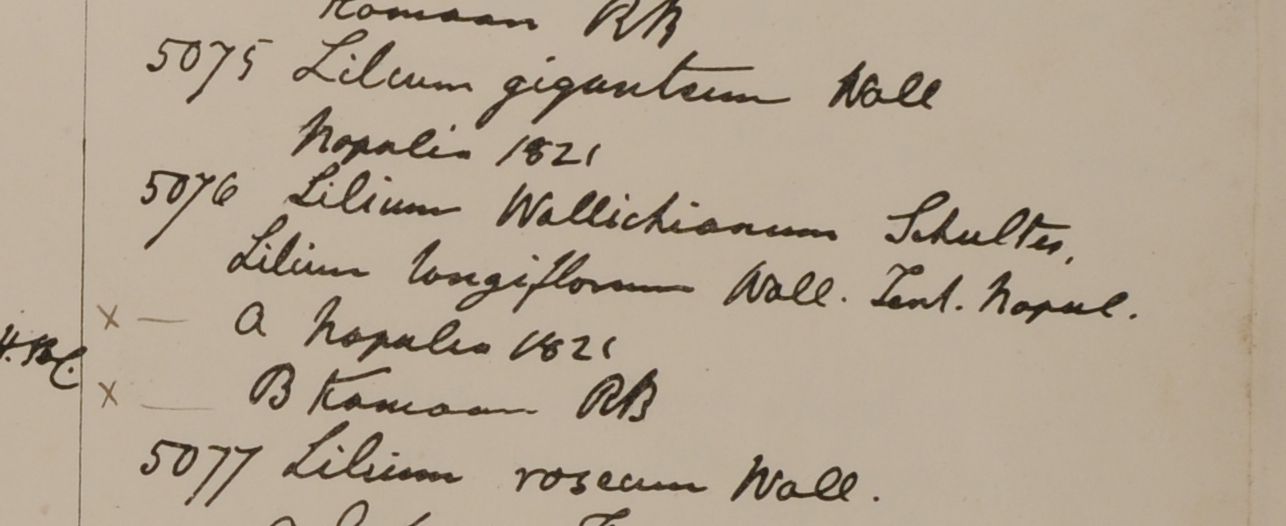 Kamaon RB
5075 Lilium giganteum Wall
Napalia 1821
5076 Lilium Wallichianum Schultes,
Lilium longiflorum Wall. Tent. Napul.
x — a Napalia 1821
x — B Kamaon RB
5077 Lilium roseum Wall.